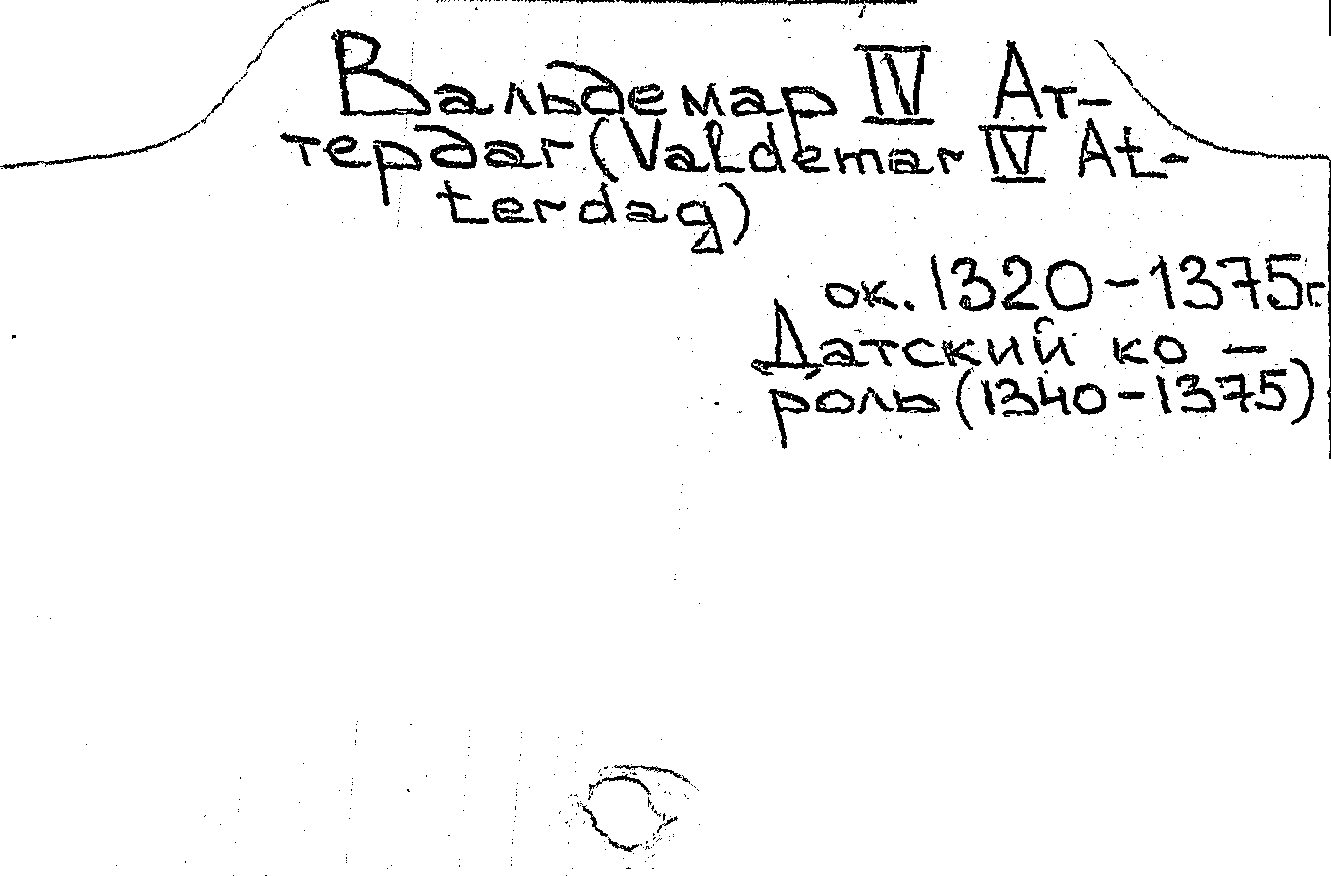 Вальдемар IV Ат-
тердаг (Valdemar IV At-
terdag)
ок. 1320-1375г.
Датский ко-
роль (1340-1375)